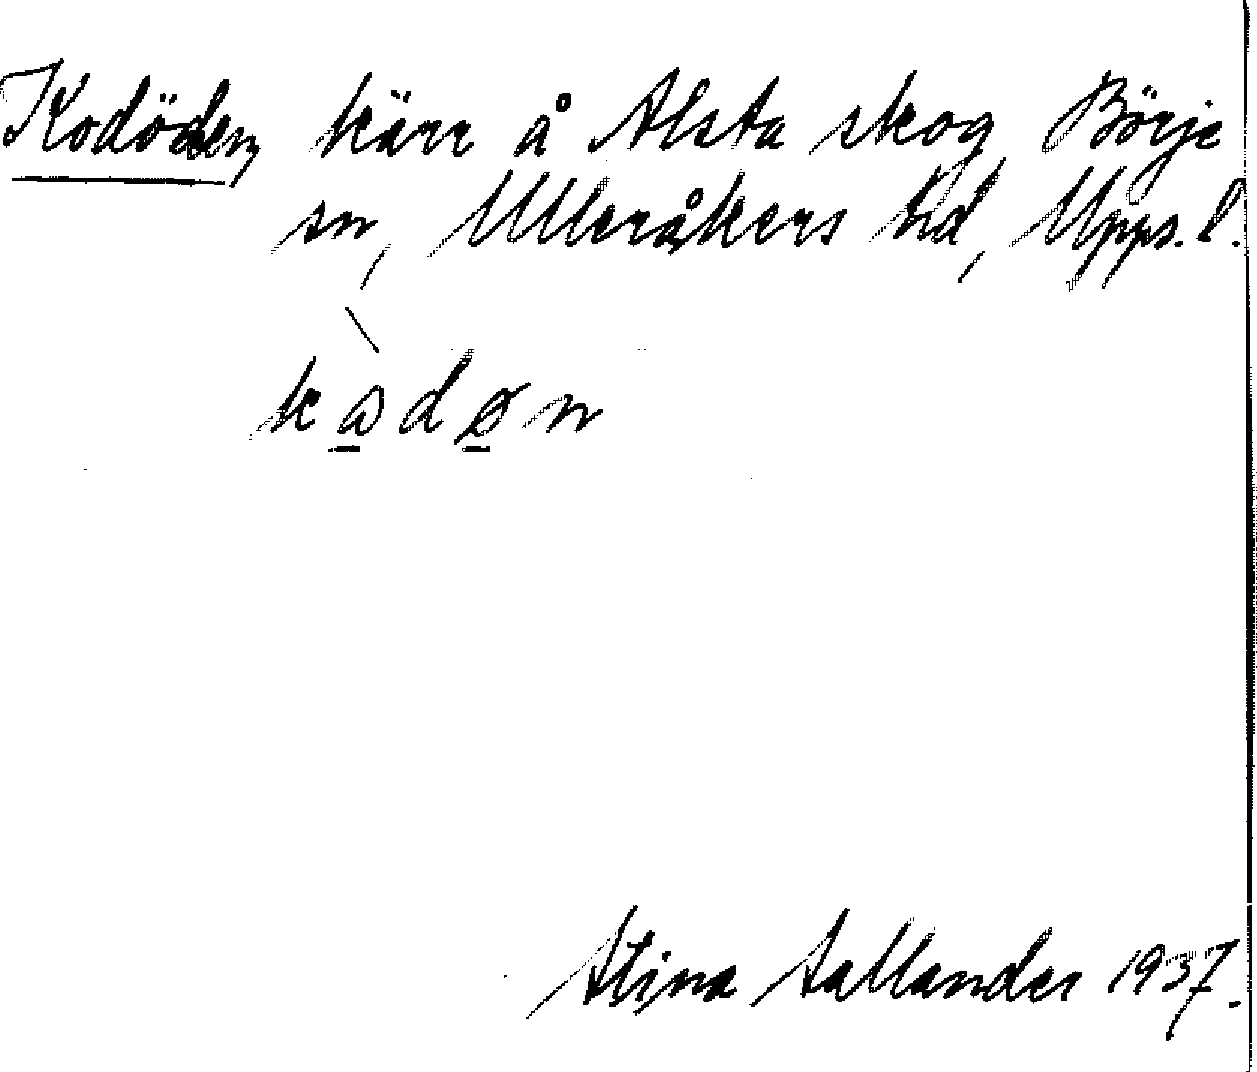 Kodöden, kärr å Alsta skog, Börje
sn, Ulleråkers hd, Upps. l.
kødøn
Stina Sallander 1937.